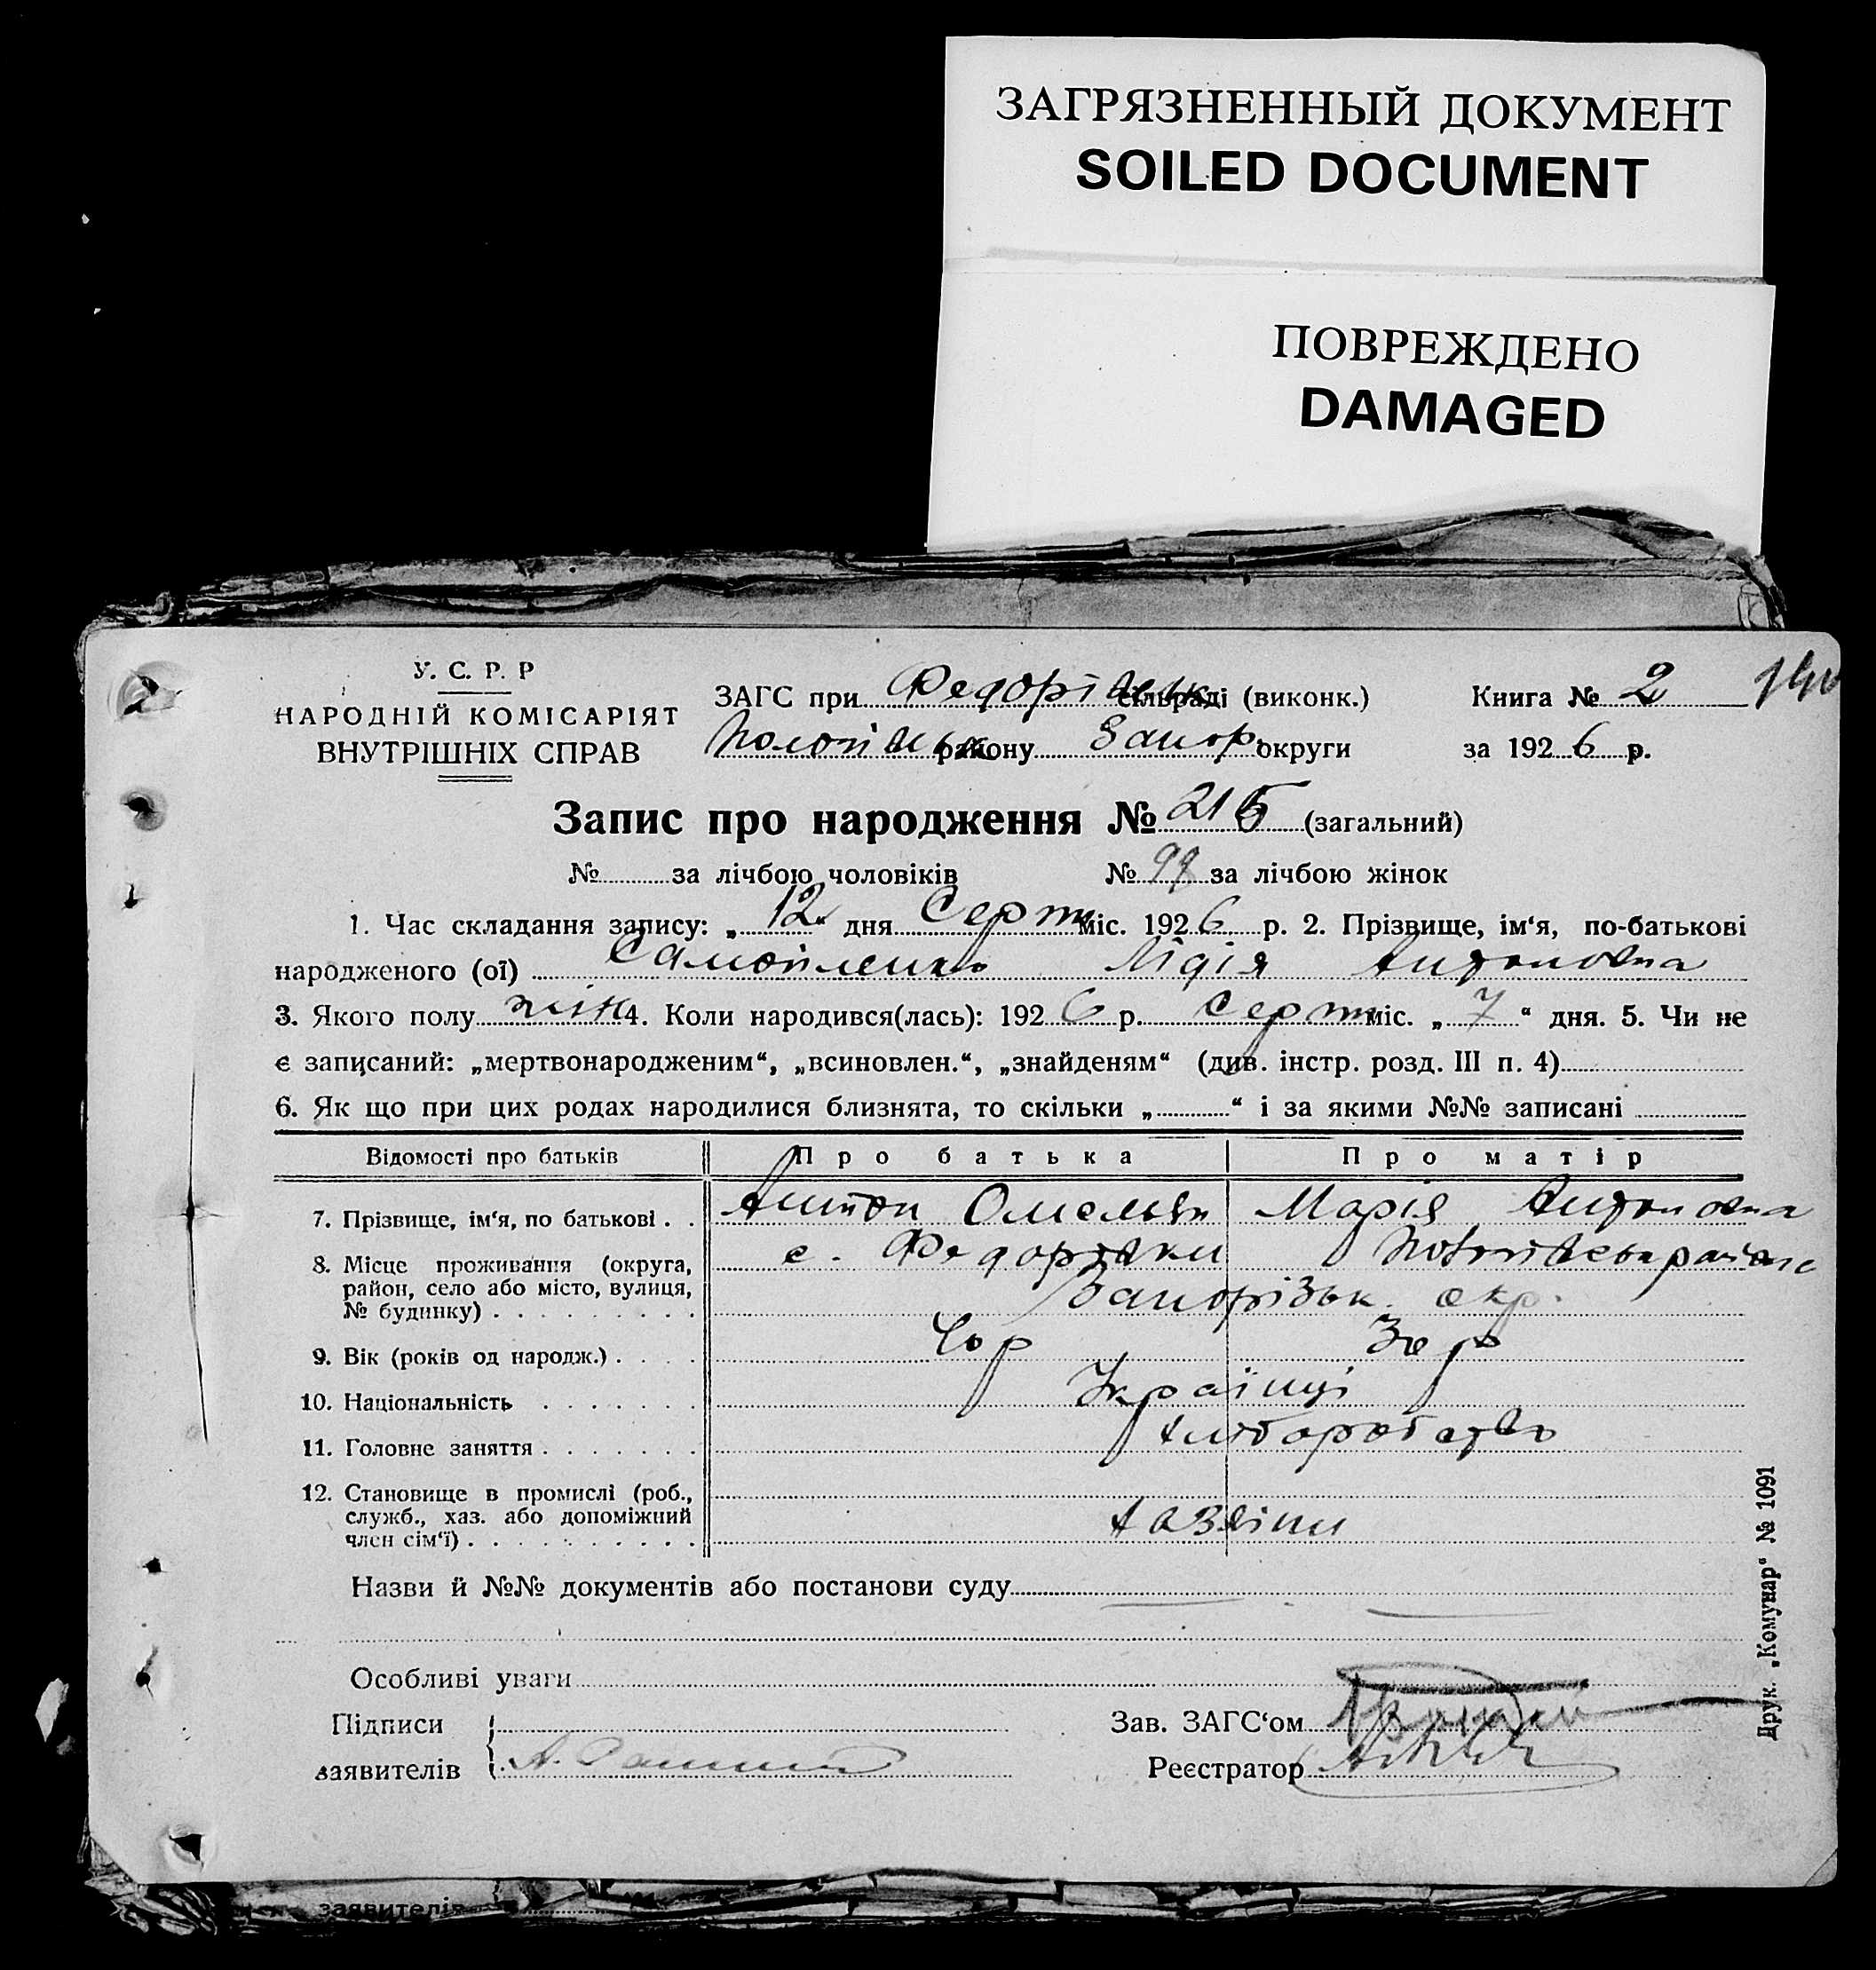 ЗАГРЯЗНЕННЫЙ ДОКУМЕНТ
SOILED DOCUMENT
ПОВРЕЖДЕНО
DAMAGED
У. С. Р. Р
НАРОДНІЙ КОМІСАРІЯТ
ВНУТРІШНІХ СПРАВ
ЗАГС при Федорівськ сільраді (виконк.) Книга № 2
району Запор. округи за 1926 р.
Запис про народження № 215 (загальний)
№ за лічбою чоловіків № 99 за лічбою жінок
1. Час складання запису: „12“ дня Серпн міс. 1926 р. 2. Прізвище, ім'я, по-батькові
народженого (ої) Самойленко Лідія Антоновна
3. Якого полу жін 4. Коли народився(лась): 1926 р. Серпн міс. „7“ дня. 5. Чи не
є записаний: „мертвонародженим“, „всиновлен.“, „знайденям“ (див. інстр. розд. III п. 4)
6. Як що при цих родах народилися близнята, то скільки „ “ і за якими №№ записані
Відомості про батьків Про батька Про матір
7. Прізвище, ім'я, по батькові . . Антон Омельян Марія Антоновна
8. Місце проживання (округа, с. Федорівки
район, село або місто, вулиця, Запорізьк. окр.
№ будинку) . . . . . . . . .
9. Вік (років од народж.) . . . .
10. Національність . . . . . . . Українці
11. Головне заняття . . . . . . . хліборобство
12. Становище в промислі (роб.,
служб., хаз. або допоміжний хазяіни
член сім'ї) . . . . . . . . . .
Назви й №№ документів або постанови суду
Особливі уваги
Підписи Зав. ЗАГС'ом
заявителів Реєстратор
Друк. „Комунар“ № 1091
заявителів